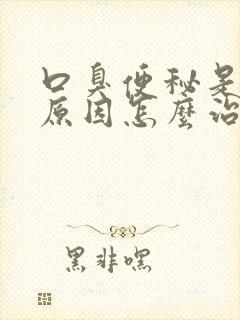 口臭便秘是
原因怎麼治
黑非嘿